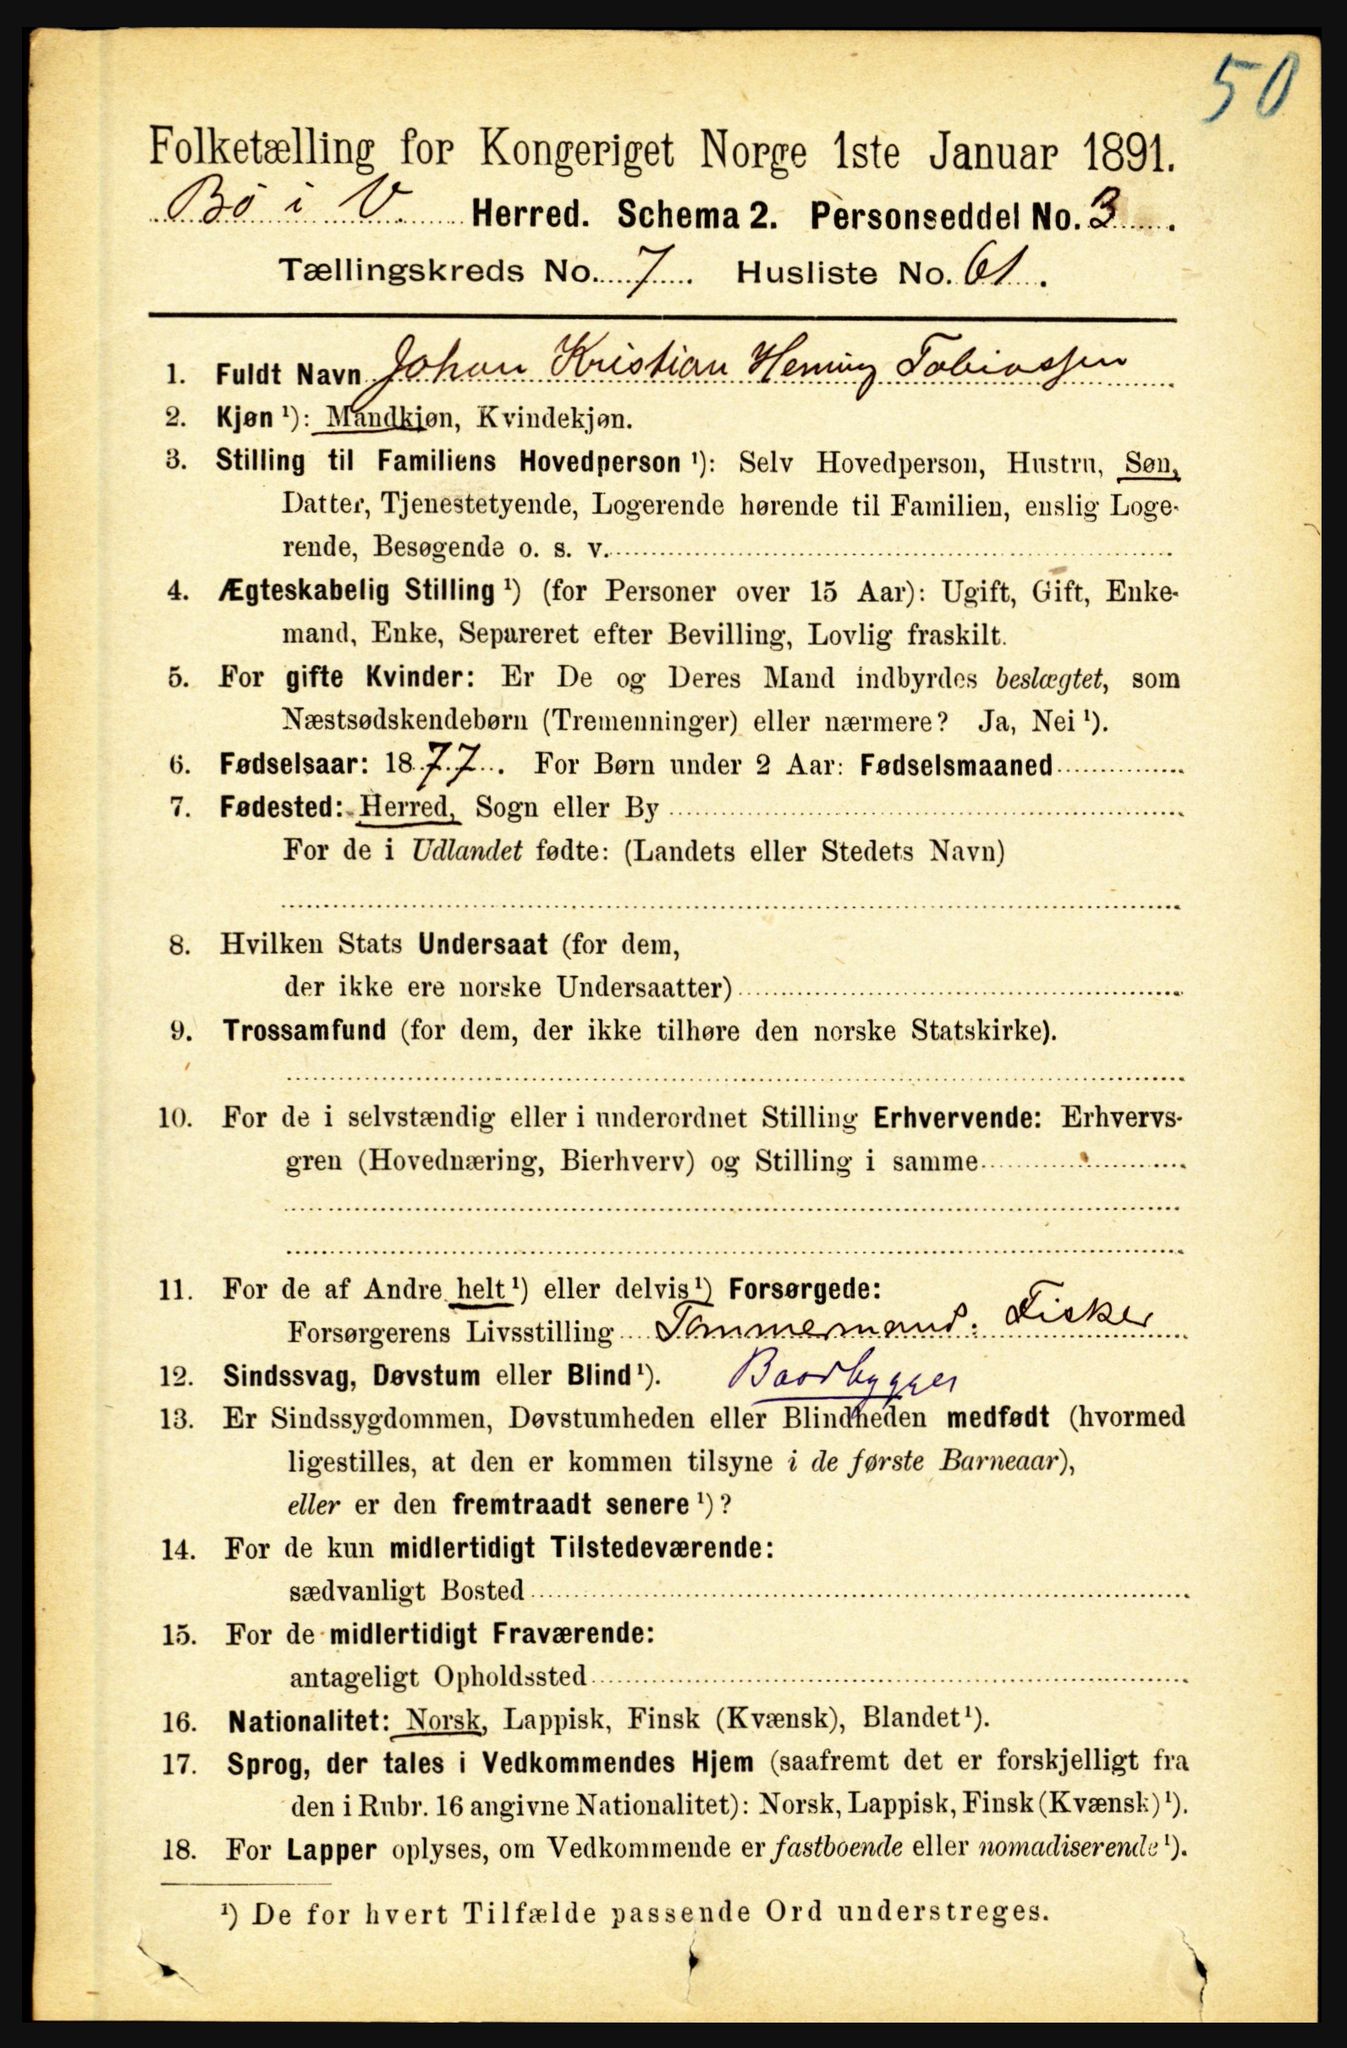 50
Folketælling for Kongeriget Norge 1ste Januar 1891.
Bö i V. Herred. Schema 2. Personseddel No. 3.
Tællingskreds No. 7. Husliste No. 61.
1. Fuldt Navn Johan Kristian Hening Tobiassen
2. Kjøn ¹): Mandkjøn, Kvindekjøn.
3. Stilling til Familiens Hovedperson ¹): Selv Hovedperson, Hustru, Søn,
Datter, Tjenestetyende, Logerende hørende til Familien, enslig Loge-
rende, Besøgende o. s. v.
4. Ægteskabelig Stilling ¹) (for Personer over 15 Aar): Ugift, Gift, Enke-
mand, Enke, Separeret efter Bevilling, Lovlig fraskilt.
5. For gifte Kvinder: Er De og Deres Mand indbyrdes beslægtet, som
Næstsødskendebørn (Tremenninger) eller nærmere? Ja, Nei ¹).
6. Fødselsaar: 1877. For Børn under 2 Aar: Fødselsmaaned
7. Fødested: Herred, Sogn eller By
For de i Udlandet fødte: (Landets eller Stedets Navn)
8. Hvilken Stats Undersaat (for dem,
der ikke ere norske Undersaatter)
9. Trossamfund (for dem, der ikke tilhøre den norske Statskirke).
10. For de i selvstændig eller i underordnet Stilling Erhvervende: Erhvervs-
gren (Hovednæring, Bierhverv) og Stilling i samme
11. For de af Andre helt ¹) eller delvis ¹) Forsørgede:
Forsørgerens Livsstilling Tømmermand. Fisker
12. Sindssvag, Døvstum eller Blind ¹). Baadbygger
13. Er Sindssygdommen, Døvstumheden eller Blindheden medfødt (hvormed
ligestilles, at den er kommen tilsyne i de første Barneaar),
eller er den fremtraadt senere ¹)?
14. For de kun midlertidigt Tilstedeværende:
sædvanligt Bosted
15. For de midlertidigt Fraværende:
antageligt Opholdssted
16. Nationalitet: Norsk, Lappisk, Finsk (Kvænsk), Blandet ¹).
17. Sprog, der tales i Vedkommendes Hjem (saafremt det er forskjelligt fra
den i Rubr. 16 angivne Nationalitet): Norsk, Lappisk, Finsk (Kvænsk) ¹).
18. For Lapper oplyses, om Vedkommende er fastboende eller nomadiserende ¹).
¹) De for hvert Tilfælde passende Ord understreges.